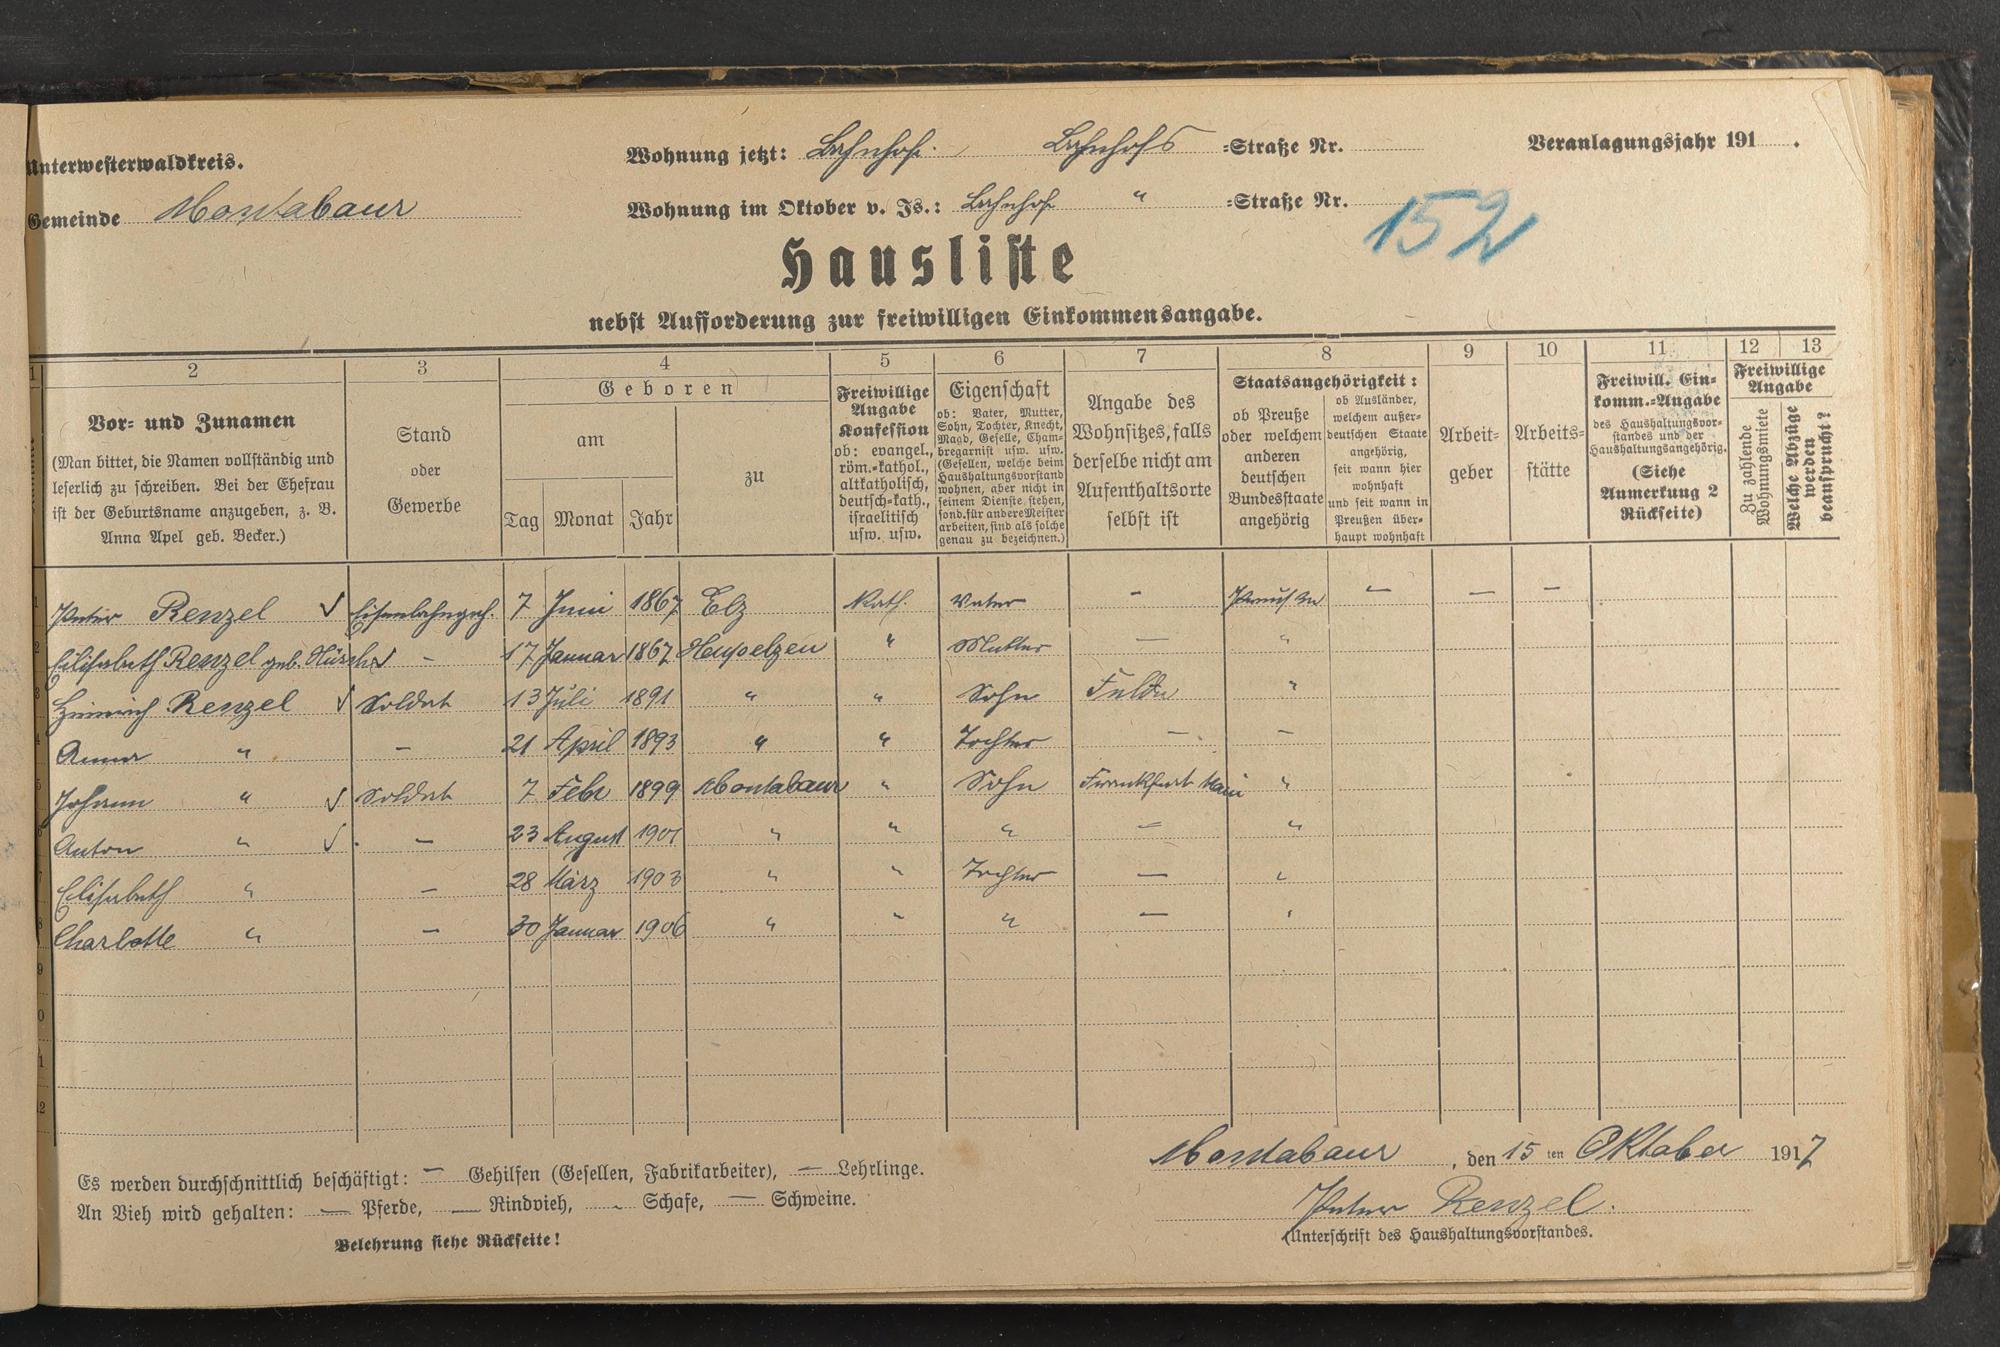 Unterwesterwaldkreis.
Wohnung jetzt: Bahnhof. Bahnhofs =Straße Nr.
Veranlagungsjahr 191 .
Gemeinde Montabaur
Wohnung im Oktober v. Js.: Bahnhof " =Straße Nr.
152
Hausliste
nebst Aufforderung zur freiwilligen Einkommensangabe.
1 2 3 4 5 6 7 8 9 10 11 12 13
Vor- und Zunamen
(Man bittet, die Namen vollständig und
leserlich zu schreiben. Bei der Ehefrau
ist der Geburtsname anzugeben, z. B.
Anna Apel geb. Becker.)
Stand
oder
Gewerbe
Geboren
am
Tag Monat Jahr
zu
Freiwillige
Angabe
Konfession
ob: evangel.,
röm.-kathol.,
altkatholisch,
deutsch-kath.,
israelitisch
usw. usw.
Eigenschaft
ob: Vater, Mutter,
Sohn, Tochter, Knecht,
Magd, Geselle, Cham-
bregarnist usw. usw.
(Gesellen, welche beim
Haushaltungsvorstand
wohnen, aber nicht in
seinem Dienste stehen,
sond. für andere Meister
arbeiten, sind als solche
genau zu bezeichnen.)
Angabe des
Wohnsitzes, falls
derselbe nicht am
Aufenthaltsorte
selbst ist
Staatsangehörigkeit:
ob Preuße
oder welchem
anderen
deutschen
Bundesstaate
angehörig
ob Ausländer,
welchem außer-
deutschen Staate
angehörig,
seit wann hier
wohnhaft
und seit wann in
Preußen über-
haupt wohnhaft
Arbeit-
geber
Arbeits-
stätte
Freiwill. Ein-
komm.-Angabe
des Haushaltungsvor-
standes und der
Haushaltungsangehörig.
(Siehe
Anmerkung 2
Rückseite)
Freiwillige
Angabe
Zu zahlende
Wohnungsmiete
Welche Abzüge
werden
beansprucht?
1 Peter Renzel ✓ Eisenbahngeh. 7 Juni 1867 Elz Kath. Vater – Preuße – – –
2 Elisabeth Renzel geb. ✓ – 17 Januar 1867 " Mutter – "
3 Heinrich Renzel ✓ Soldat 13 Juli 1891 " " Sohn Fulda "
4 Anna " – 21 April 1893 " " Tochter – –
5 Johann " ✓ Soldat 7 Febr 1899 Montabaur " Sohn Frankfurt Main "
6 Anton " ✓ – 23 August 1901 " " " – "
7 Elisabeth " – 28 März 1903 " " Tochter – "
8 Charlotte " – 30 Januar 1906 " " " – "
9
0
1
12
Es werden durchschnittlich beschäftigt: – Gehilfen (Gesellen, Fabrikarbeiter), – Lehrlinge.
An Vieh wird gehalten: – Pferde, – Rindvieh, – Schafe, – Schweine.
Belehrung siehe Rückseite!
Montabaur, den 15 ten Oktober 1917
Peter Renzel.
(Unterschrift des Haushaltungsvorstandes.